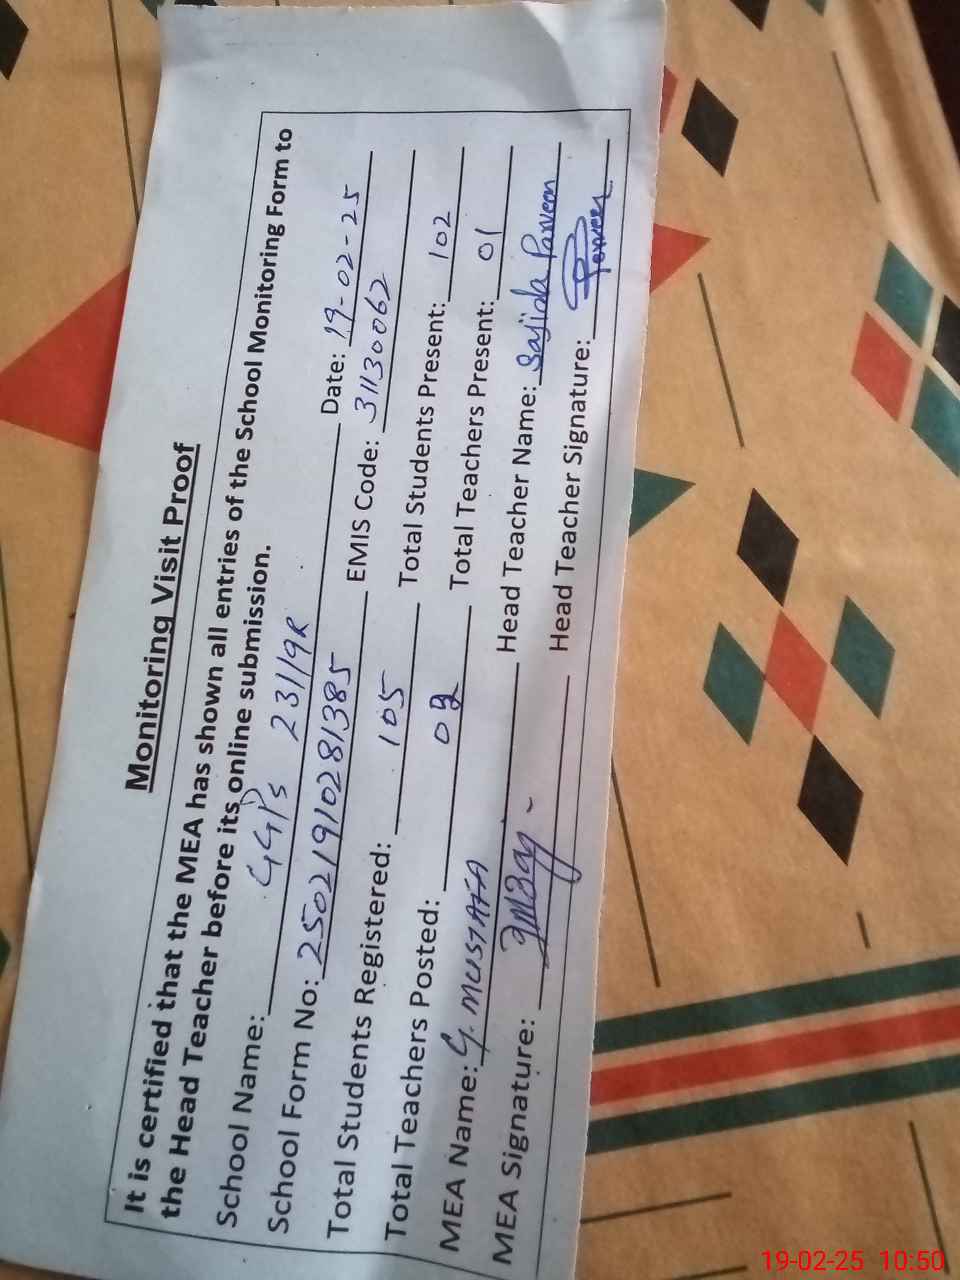 Monitoring Visit Proof
It is certified that the MEA has shown all entries of the School Monitoring Form to
the Head Teacher before its online submission.
School Name: GGPS 231/9R Date: 19-02-25
School Form No: 25021910281385 EMIS Code: 31130062
Total Students Registered: 105 Total Students Present: 102
Total Teachers Posted: Total Teachers Present: 01
MEA Name: G. MUSTAFA Head Teacher Name: Sajida Parveen
MEA Signature: Head Teacher Signature: Parveen
19-02-25 10:50